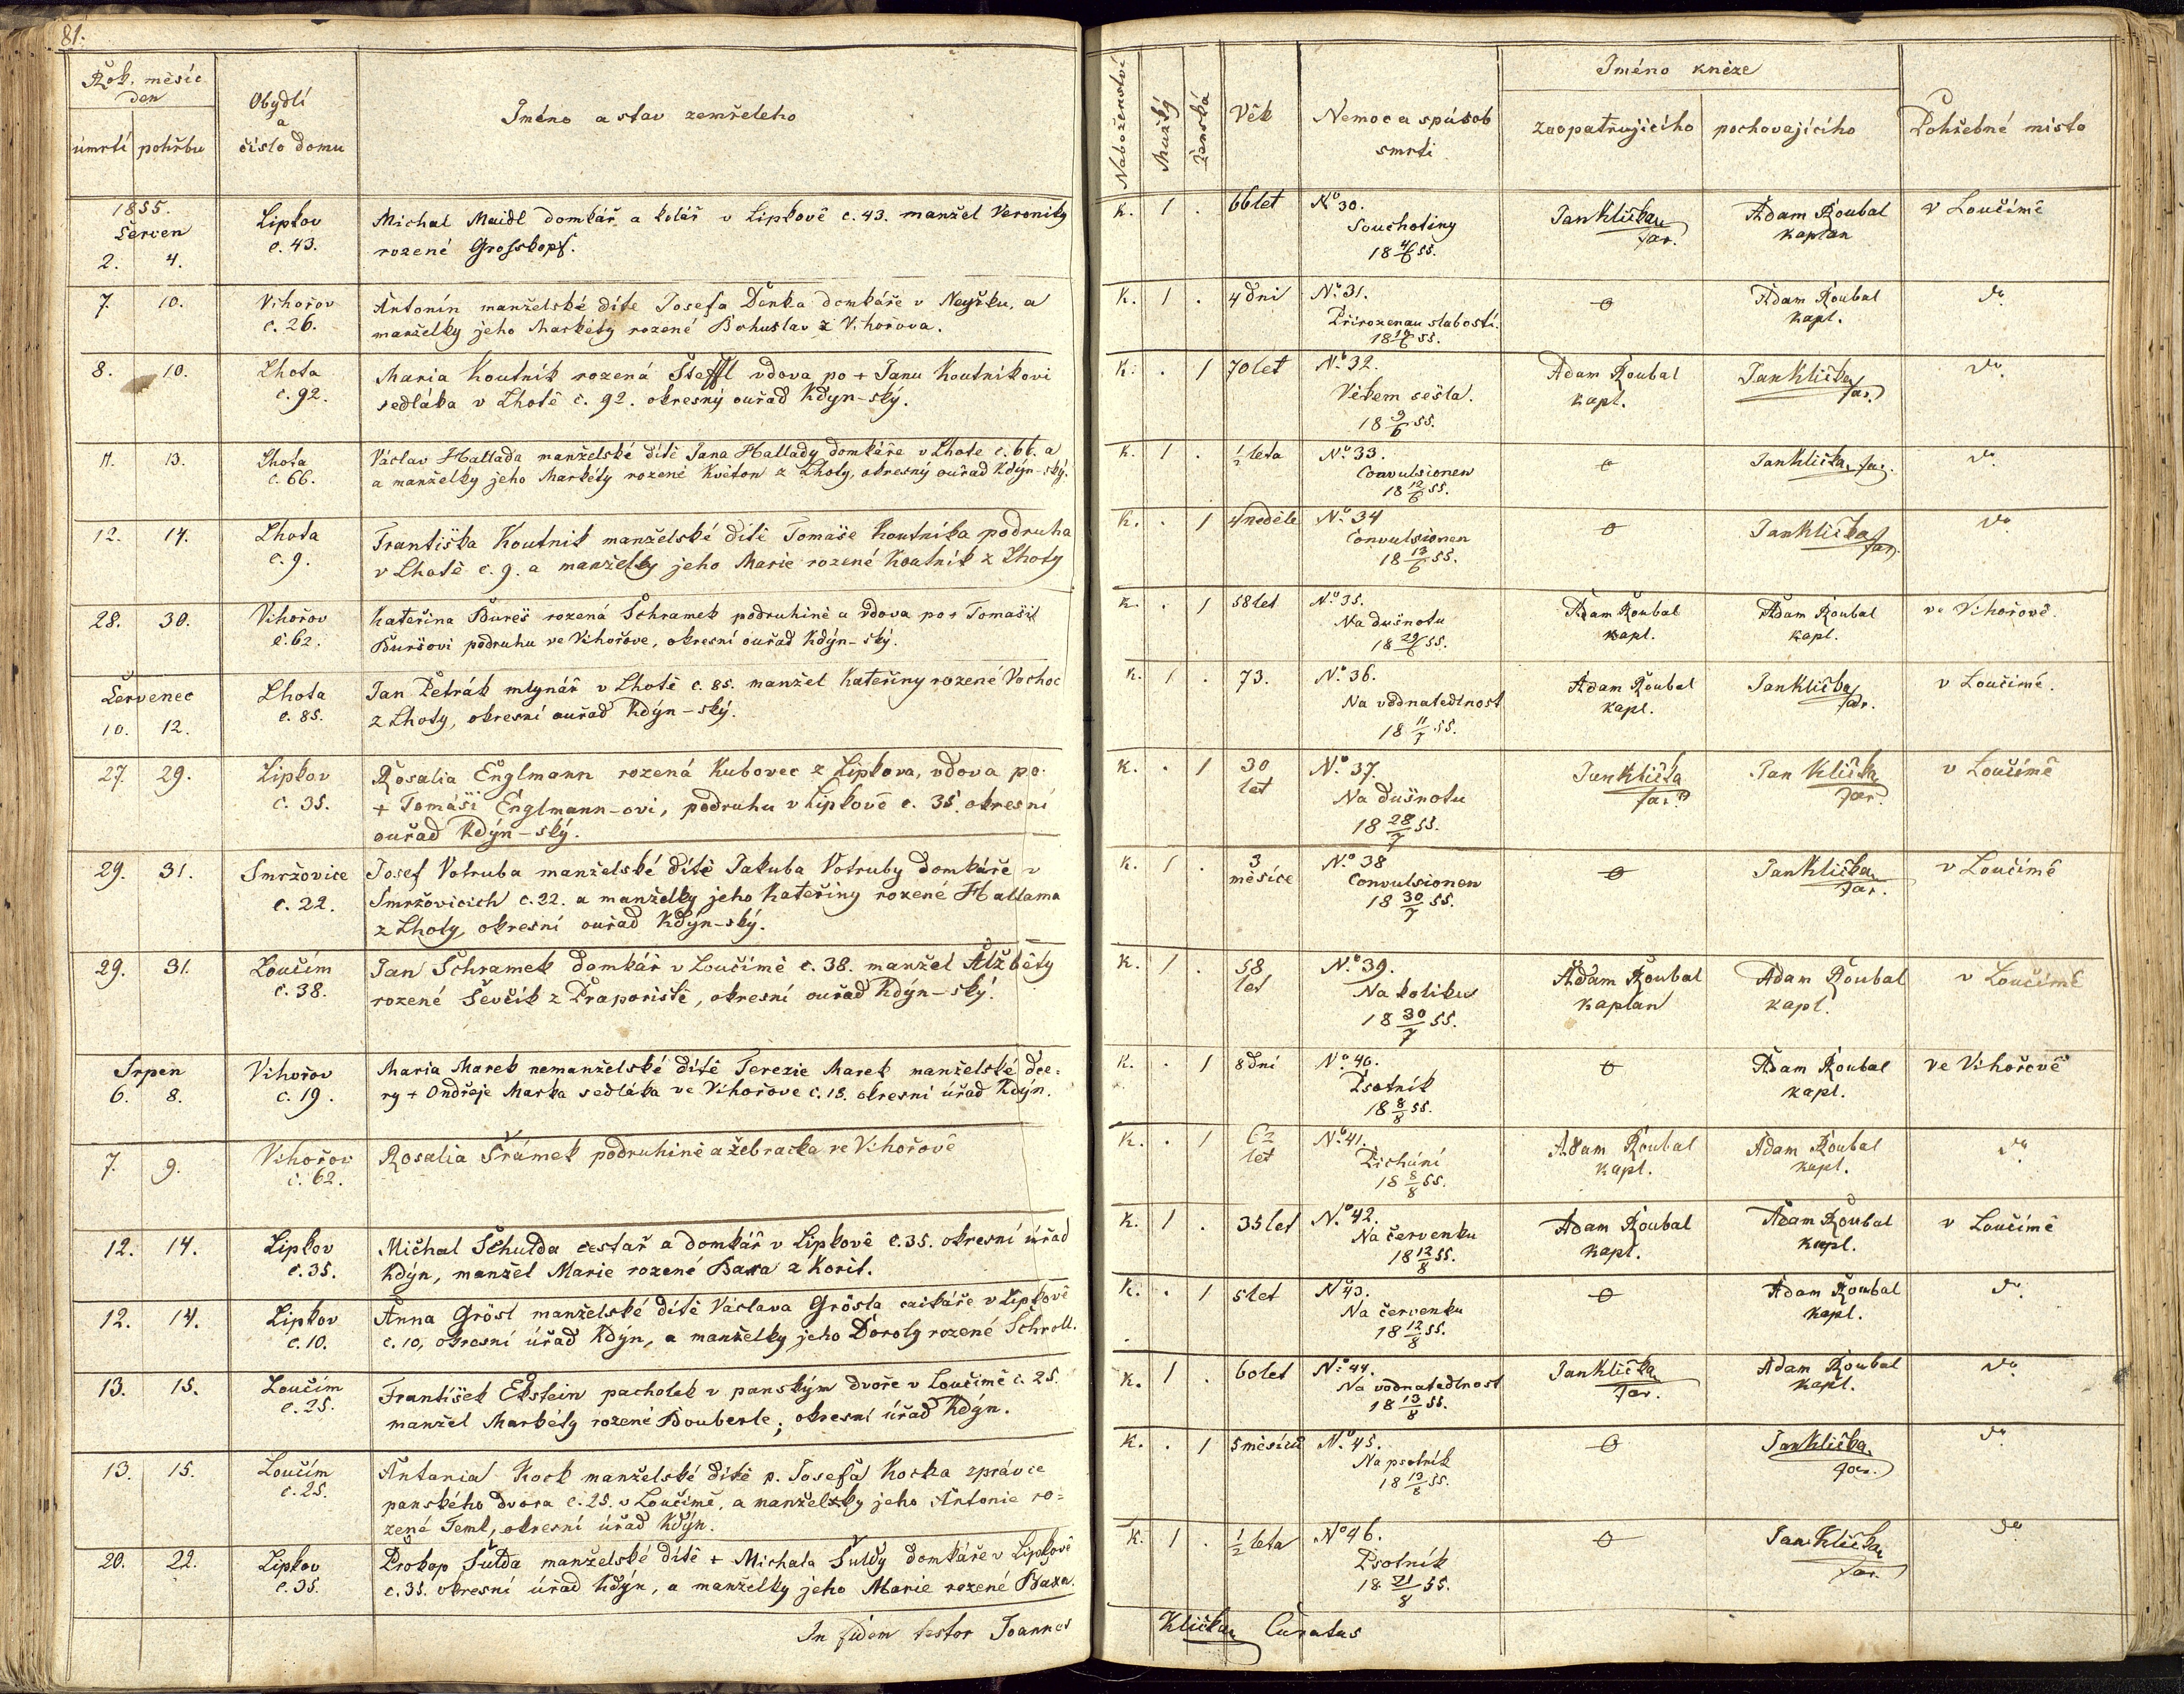 81.
Rok. měsíc
den
úmrtí pohřbu
Obydlí
a
číslo domu
Jméno a stav zemřelého
1855.
Červen
2. 4.
Lipkov
č. 43.
Michal Maidl domkář a kolář v Lipkově č. 43. manžel Veroniky
rozené Grosskopf.
7. 10.
Vihořov
č. 26.
Antonín manželské díte Josefa Denka domkáře v Neyřku, a
manželky jeho Markéty rozené Bohuslav z Vihořova.
8. 10.
Lhota
č. 92.
Maria Koutník rozená Steffl vdova po + Janu Koutníkovi
sedláka v Lhotě č. 92. okresný ouřad Kdyn-ský.
11. 13.
Lhota
č. 66.
Václav Hallada manželské dítě Jana Hallady domkáře v Lhote č. 66. a
a manželky jeho Markéty rozené Květon z Lhoty, okresný ouřad Kdýn-ský.
12. 14.
Lhota
č. 9.
Františka Koutnik manželské dítě Tomáše Koutníka podruha
v Lhotě č. 9. a manželky jeho Marie rozené Koutník z Lhoty
28. 30.
Vihořov
č. 62.
Kateřina Bureš rozená Schramek podruhině a vdova po + Tomaši
Buršovi podruhu ve Vihořove, okresní ouřad Kdýn-ský.
Červenec
10. 12.
Lhota
č. 85.
Jan Petrák mlynář v Lhotě č. 85. manžel Kateřiny rozené Vachoc
z Lhoty, okresní ouřad Kdýn-ský.
27. 29.
Lipkov
č. 35.
Rosalia Englmann rozená Kubovec z Lipkova, vdova po
+ Tomáši Englmann-ovi, podruhu v Lipkově č. 35. okresní
ouřad Kdýn-ský.
29. 31.
Smržovice
č. 22.
Josef Votruba manželské dítě Jakuba Votruby domkáře v
Smržovicich č. 22. a manželky jeho Kateřiny rozené Hallama
z Lhoty, okresní ouřad Kdýn-ský.
29. 31.
Loučím
č. 38.
Jan Schramek domkář v Loučímě č. 38. manžel Alžběty
rozené Ševčík z Praporiště, okresní ouřad Kdýn-ský.
Srpen
6. 8.
Vihořov
č. 19.
Maria Marek nemanželské dítě Terezie Marek manželské dce-
ry + Ondřeje Marka sedláka ve Vihořove č. 18. okresní úřad Kdýn.
7. 9.
Vihořov
č. 62.
Rosalia Šrámek podruhině a žebracka ve Vihořově
12. 14.
Lipkov
č. 35.
Michal Schulda cestař a domkář v Lipkově č. 35. okresní úřad
Kdýn, manžel Marie rozené Baxa z Korit.
12. 14.
Lipkov
č. 10.
Anna Grösl manželské dítě Václava Grösla caikáře v Lipkově
č. 10, okresní úřad Kdýn, a manželky jeho Doroty rozené Schroll.
13. 15.
Loučim
č. 25.
František Ekstein pacholek v panským dvoře v Loučímě č. 25.
manžel Markéty rozené Bouberle, okresní úřad Kdýn.
13. 15.
Loučim
č. 25.
Antania Kock manželské dítě p. Josefa Kocka zprávce
panského dvora č. 25. v Loučimě, a manželky jeho Antonie ro-
zená Teml, okresní úřad Kdýn.
20. 22.
Lipkov
č. 35.
Prokop Šulda manželské dítě + Michala Šuldy domkáře v Lipkově
č. 35. okresní úřad Kdýn, a manželky jeho Marie rozené Baxa.
In fidem testor Joannes
Náboženství
Mužský
ženská
Věk
Nemoc a spúsob
smrti
Jméno kněze
zaopatřujicího pochovajícího
Pohřebné místo
K. 1 . 66 let
No 30.
Souchotiny
18 4/6 55.
Jan Klička
far.
Adam Roubal
kaplan
v Loučimě
K. 1 . 4 dni
No 31.
Přirozenau slabostí.
18 10/6 55.
o
Adam Roubal
kapl.
do
K. . 1 70 let
No 32.
Věkem sešla.
18 9/6 55.
Adam Roubal
kapl.
Jan Klička
far.
do
K. 1 . 1/2 leta
No 33.
Convulsionen
18 12/6 55.
o
Jan Klička, far.
do
K. . 1 4 neděle
No 34
Convulsionen
18 13/6 55.
o
Jan Klička
far.
do
K. . 1 58 let
No 35.
Na dušnotu
18 29/6 55.
Adam Roubal
kapl.
Adam Roubal
kapl.
ve Vihořově.
K. 1 . 73.
No 36.
Na vodnatedlnost
18 11/7 55.
Adam Roubal
kapl.
Jan Klička
far.
v Loučimě.
K. . 1 30
let
No 37.
Na dušnotu
18 28/7 55.
Jan Klička
far.
Jan Klička
far.
v Loučímě
K. 1 . 3
měsíce
No 38
Convulsionen
18 30/7 55.
o
Jan Klička
far.
v Loučímě
K. 1 . 58
let
No 39.
Na koliku
18 30/7 55.
Adam Roubal
kaplan
Adam Roubal
kapl.
v Loučímě
K. . 1 8 dní
No 40.
Psotník
18 8/8 55.
o
Adam Roubal
kapl.
ve Vihořově
K. . 1 62
let
No 41.
Píchání
18 8/8 55.
Adam Roubal
kapl.
Adam Roubal
kapl.
do
K. 1 . 35 let
No 42.
Na červenku
18 12/8 55.
Adam Roubal
kapl.
Adam Roubal
kapl.
v Loučímě
K. . 1 5 let
No 43.
Na červenku
18 12/8 55.
o
Adam Roubal
kapl.
do
K. 1 . 60 let
No 44.
Na vodnatedlnost
18 13/8 55.
Jan Klička
far.
Adam Roubal
kapl.
do
K. . 1 5 měsíců
No 45.
Na psotník
18 13/8 55.
o
Jan Klička
far.
do
K. 1 . 1/2 leta
No 46.
Psotník
18 21/8 55.
o
Jan Klička
far.
do
Klička Curatus